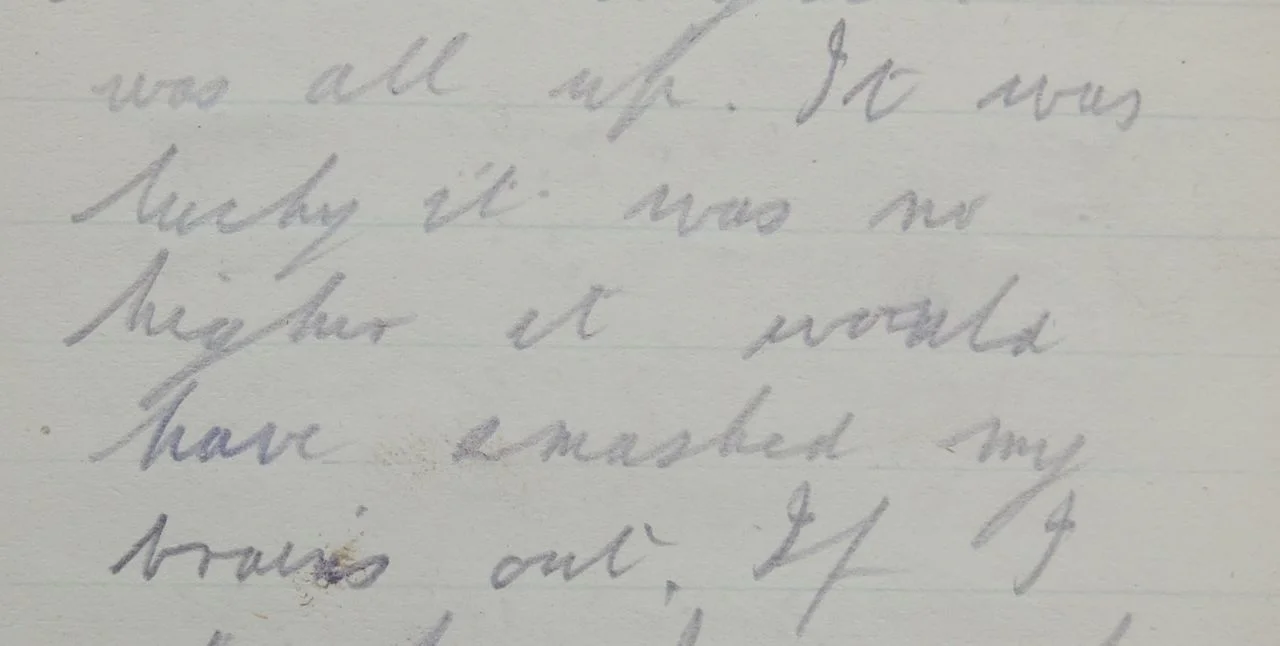 was all up. It was
lucky it was no
higher it would
have smashed my
brains out. If I